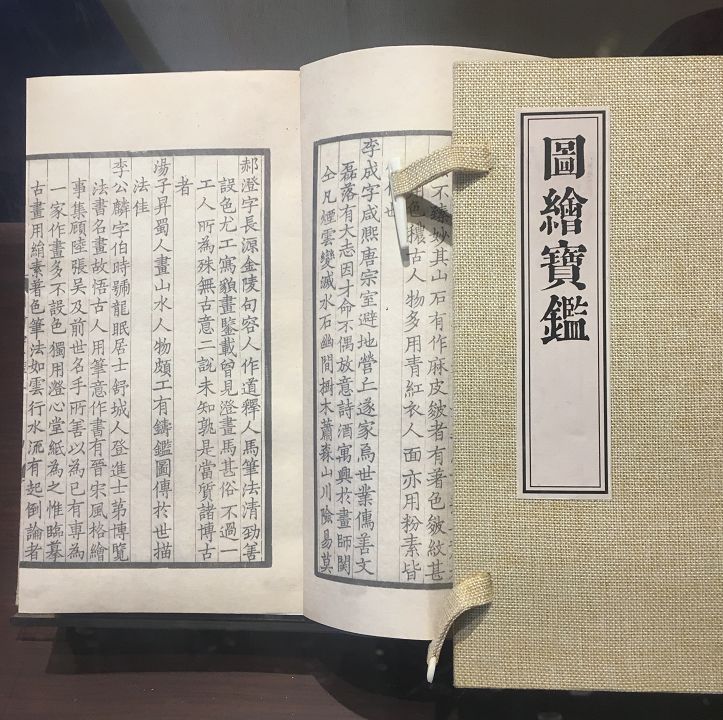 圖繪寶鑑
妙其山石有作麻皮皴者有著色皴紋甚
色穠古人物多用青紅衣人面亦用粉素皆
李成字咸熙唐宗室避地營丘遂家焉世業儒善文
磊落有大志因才命不偶放意詩酒寓興於畫師關
仝凡煙雲變滅水石幽閒樹木蕭森山川險易莫
郝澄字長源金陵句容人作道釋人馬筆法清勁善
設色尤工寫貌畫鑒載曾見澄畫馬甚俗不過一
工人所為殊無古意二說未知孰是當質諸博古
者
湯子昇蜀人畫山水人物頗工有鑄鑑圖傳於世描
法佳
李公麟字伯時號龍眠居士舒城人登進士第博覽
法書名畫故悟古人用筆意作書有晉宋風格繪
事集顧陸張吳及前世名手所善以為己有專為
一家作畫多不設色獨用澄心堂紙為之惟臨摹
古畫用絹素著色筆法如雲行水流有起倒論者